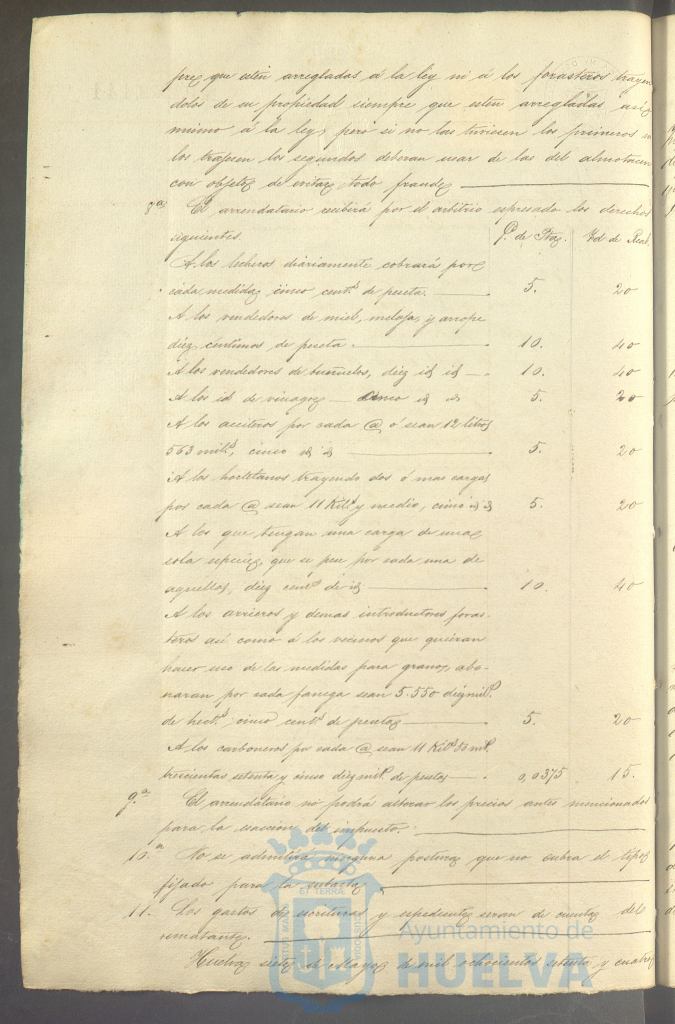 pre que esten arregladas á la ley, ni á los forasteros trayen
dolos de su propiedad siempre que esten arregladas asi
mismo á la ley; pero si no las tuviesen los primeros
los trajesen los segundos deberan usar de las del almotacen
con objeto de evitar todo fraude
8.ª El arrendatario recibirá por el arbitrio espresado los derechos
siguientes. C.s de Ptas. Yd de Real.
A los lecheros diariamente cobrará por
cada medida, cinco cent.s de peseta. 5. 20
A los vendedores de miel, meloja, y arrope
diez centimos de peseta. 10. 40
A los vendedores de buñuelos, diez id id 10. 40
A los id de vinagre cinco id id 5. 20
A los aceiteros por cada @ ó sean 12 litros
563 mil.s, cinco id id 5. 20
A los hortelanos trayendo dos ó mas cargas
por cada @ sean 11 Kil.s y medio, cinco id id 5. 20
A los que tengan una carga de una
sola especie, que se pese por cada una de
aquellas, diez cent.s de id 10. 40
A los arrieros y demas introductores foras-
teros asi como á los vecinos que quieran
hacer uso de las medidas para granos, abo-
naran por cada fanega sean 5.550 diezmil.s
de hect.s; cinco cent.s de peseta 5. 20
A los carboneros por cada @ sean 11 Kil.s 50 mil.
trescientas setenta y cinco diezmil.s de peseta 0,0375 15.
9.ª El arrendatario no podrá alterar los precios antes mencionados
para la exaccion del impuesto.
10.ª No se admitirá ninguna postura que no cubra el tipo
fijado para la subasta
11. Los gastos de escrituras y espediente seran de cuenta del
rematante.
Huelva siete de Mayo de mil ochocientos setenta y cuatro
Ayuntamiento de
HUELVA